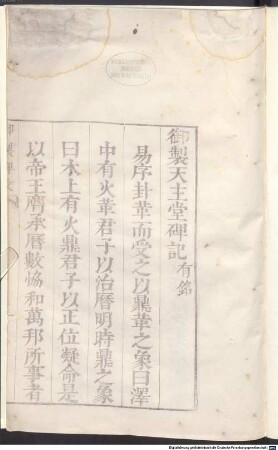 御製天主堂碑記有銘
易序卦革而受之以鼎革之象曰澤
中有火革君子以治曆明時鼎之象
曰木上有火鼎君子以正位凝命是
以帝王膺承曆數恊和萬邦所事者